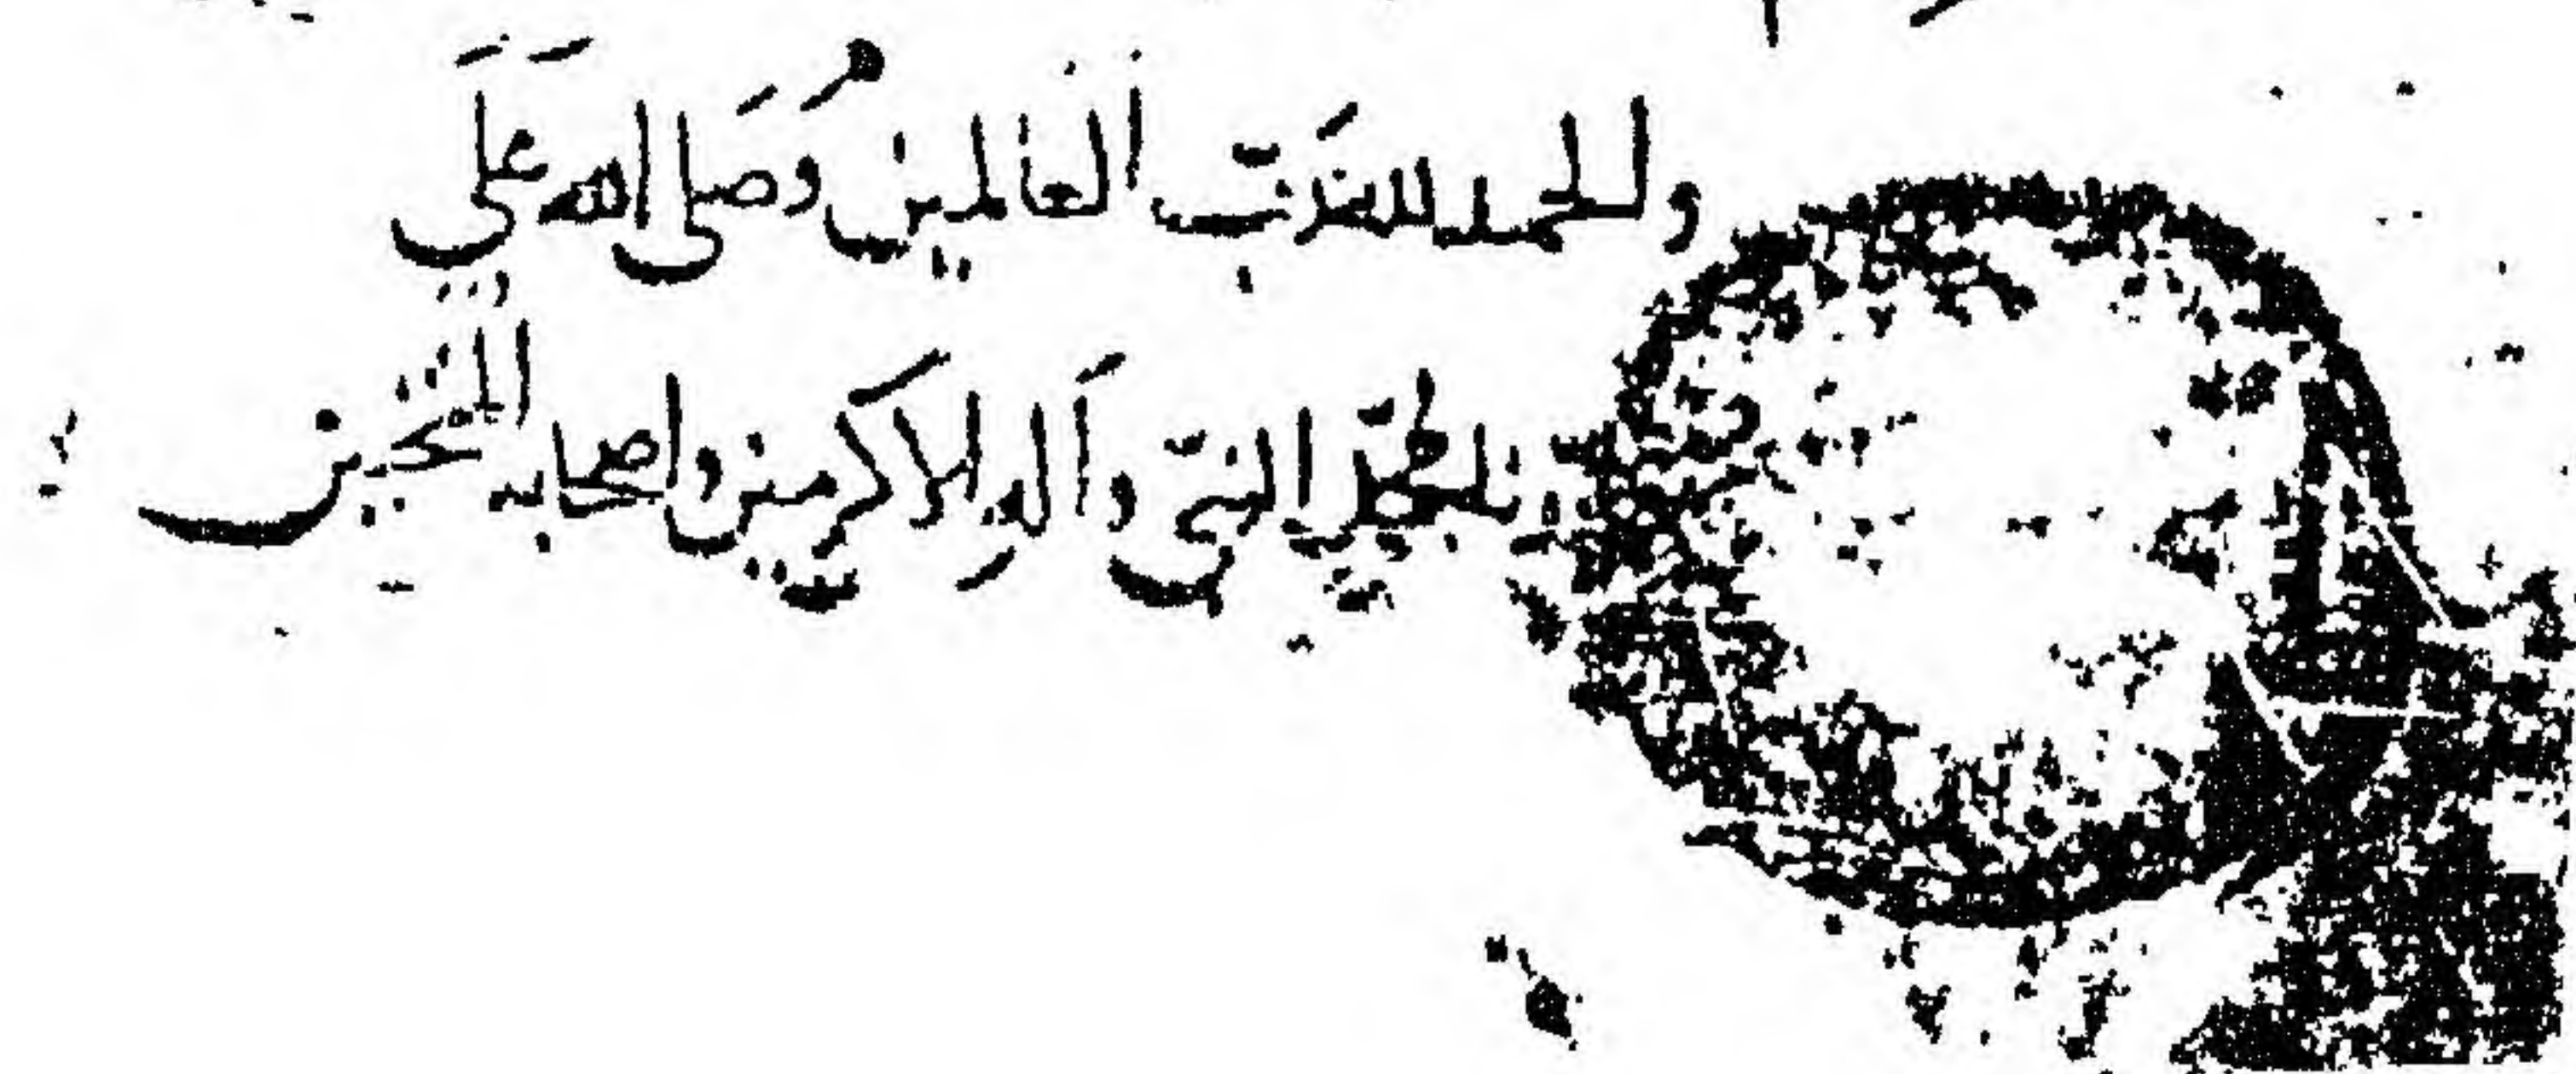 والحمد لله رب العالمين وصلى الله على
محمد النبي وآله الاكرمين واصحابه المنتجبين